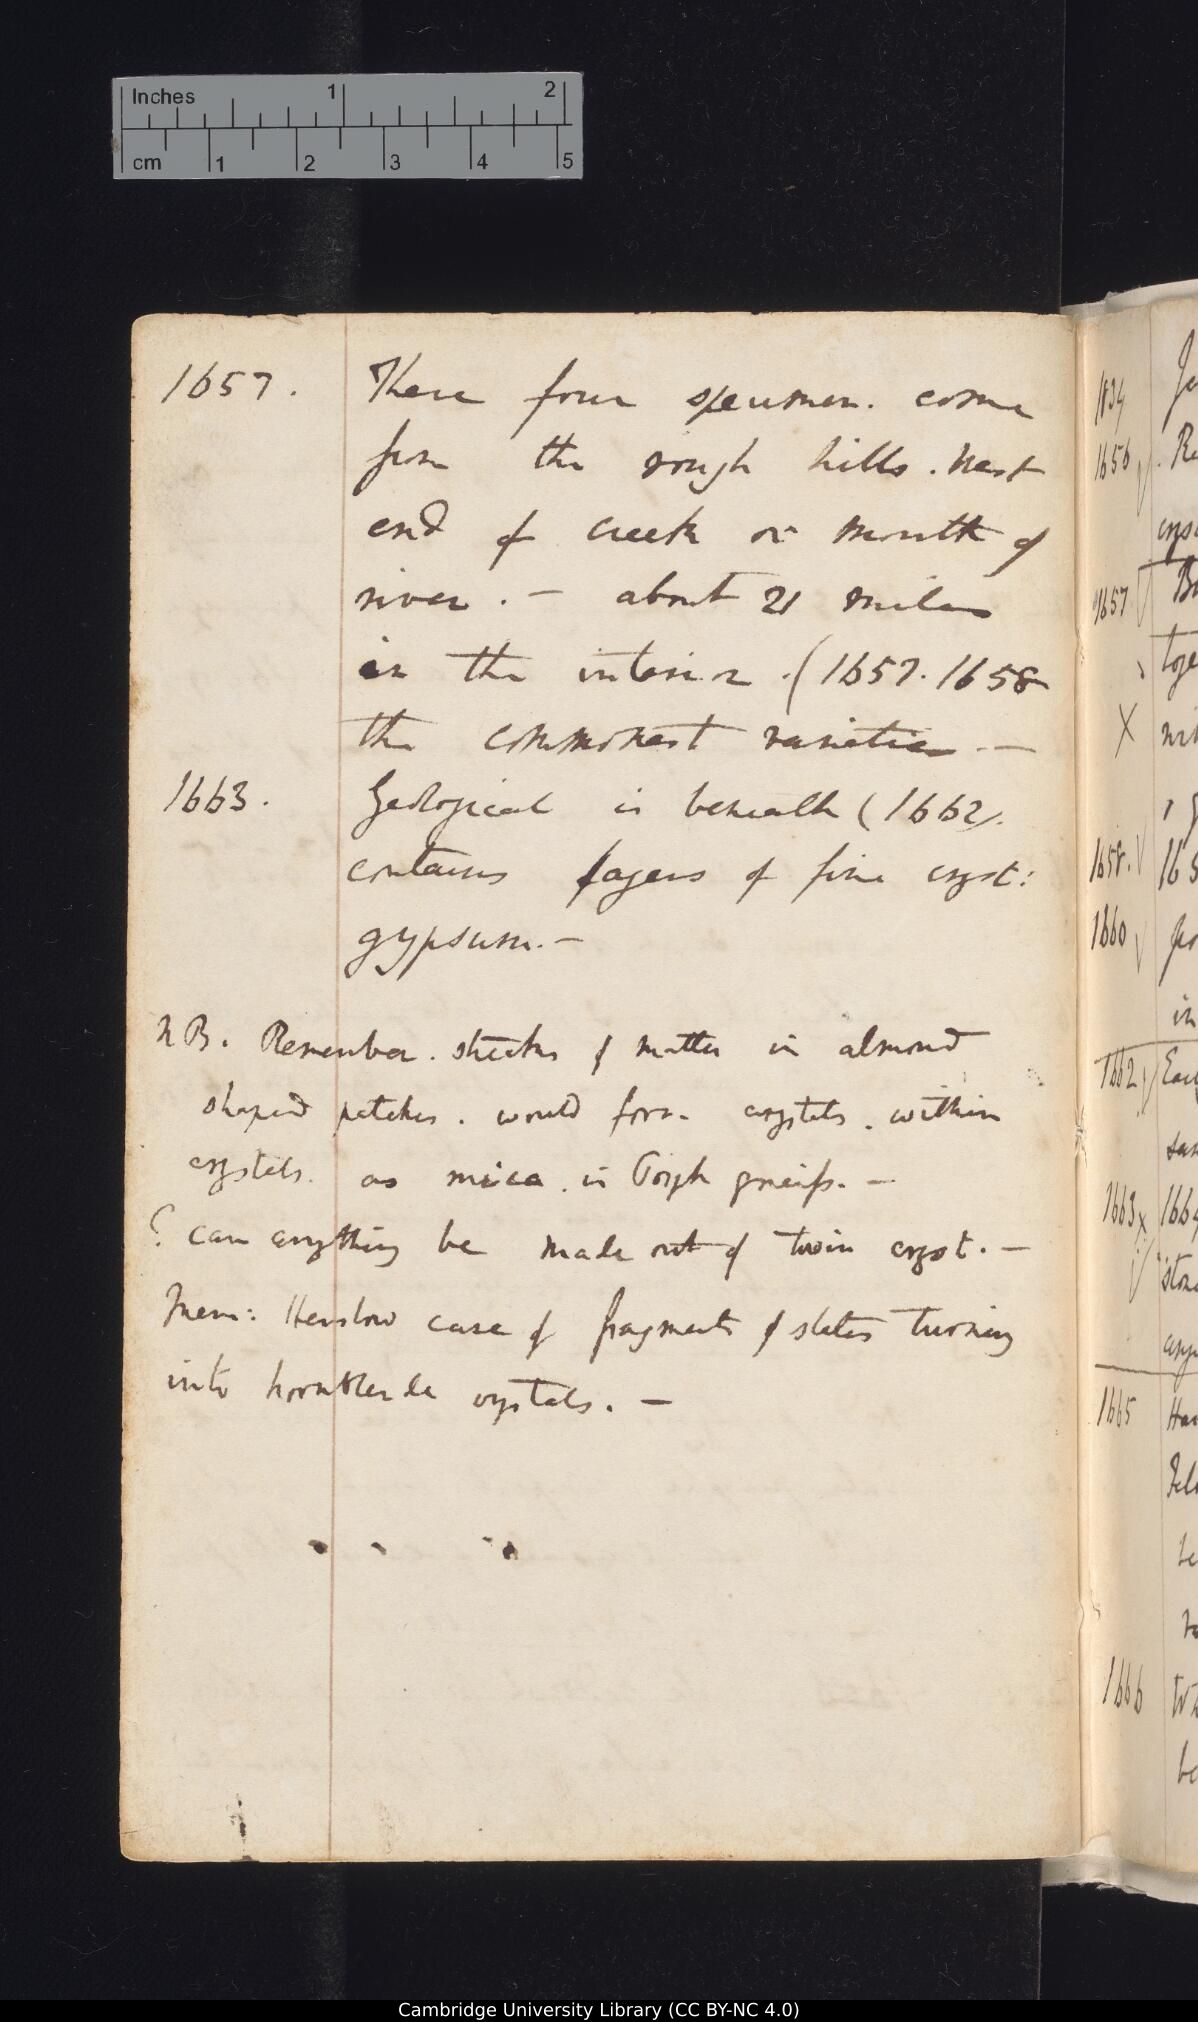 Inches 1 2
cm 1 2 3 4 5
1657. These four specimen. come
from the rough hills. West
end of creek or mouth of
river. — about 21 miles
in the interior. (1657. 1658
the commonest varieties. —
1663. Geological is beneath (1662).
contains layers of fine cryst:
gypsum. —
NB. Remember. streaks of matter in almond
shaped patches. would form crystals. within
crystals. as mica. in Porph gneiss. —
? can anything be made out of twin cryst. —
Mem: Henslow case of fragments of slates turning
into hornblende crystals. —
1834
1656
1657
X
1658.
1660
1662
1663 x
1665
1666
Cambridge University Library (CC BY-NC 4.0)